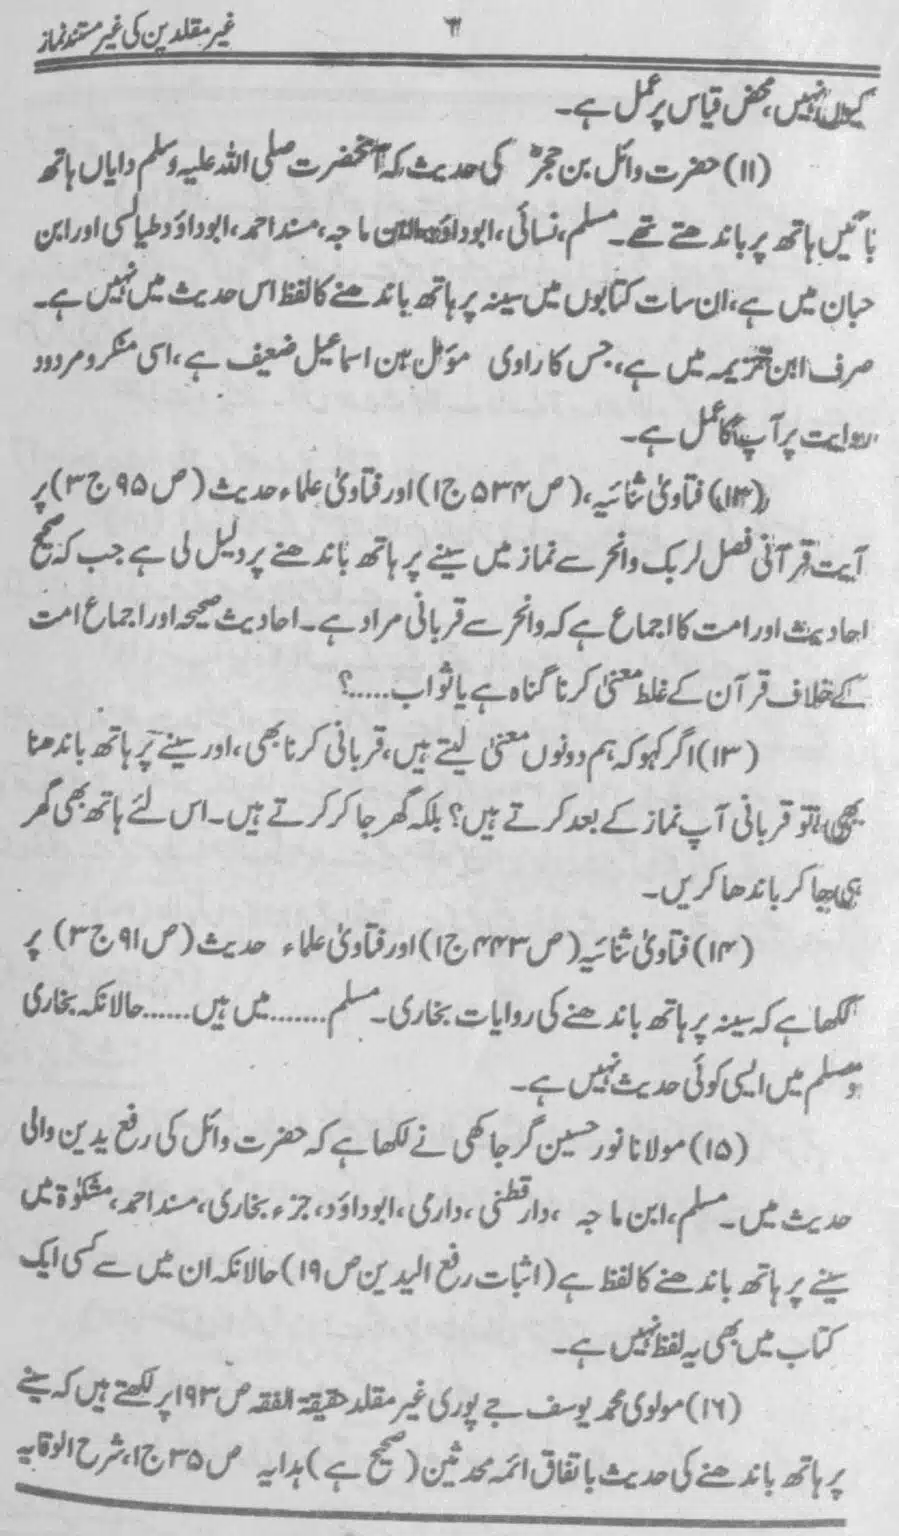 غیر مقلدین کی غیر مستند نماز
۳
کیوں نہیں، محض قیاس پر عمل ہے۔
(۱۱) حضرت وائل بن حجرؓ کی حدیث کہ آنحضرت صلی اللہ علیہ وسلم دایاں ہاتھ
بائیں ہاتھ پر باندھتے تھے۔ مسلم، نسائی، ابوداؤد، ابن ماجہ، مسند احمد، ابوداؤد طیالسی اور ابن
حبان میں ہے، ان سات کتابوں میں سینہ پر ہاتھ باندھنے کا لفظ اس حدیث میں نہیں ہے۔
صرف ابن خزیمہ میں ہے، جس کا راوی مؤمل بن اسماعیل ضعیف ہے، اسی منکر و مردود
روایت پر آپ کا عمل ہے۔
(۱۲) فتاویٰ ثنائیہ، (ص ۵۳۴ ج ۱) اور فتاویٰ علماء حدیث (ص ۹۵ ج ۳) پر
آیت قرآنی فصل لربک وانحر سے نماز میں سینے پر ہاتھ باندھنے پر دلیل لی ہے جب کہ صحیح
احادیث اور امت کا اجماع ہے کہ وانحر سے قربانی مراد ہے۔ احادیث صحیحہ اور اجماع امت
کے خلاف قرآن کے غلط معنیٰ کرنا گناہ ہے یا ثواب.....؟
(۱۳) اگر کہو کہ ہم دونوں معنیٰ لیتے ہیں، قربانی کرنا بھی، اور سینے پر ہاتھ باندھنا
بھی، تو قربانی آپ نماز کے بعد کرتے ہیں؟ بلکہ گھر جا کر کرتے ہیں۔ اس لئے ہاتھ بھی گھر
ہی جا کر باندھا کریں۔
(۱۴) فتاویٰ ثنائیہ (ص ۴۴۳ ج ۱) اور فتاویٰ علماء حدیث (ص ۹۱ ج ۳) پر
لکھا ہے کہ سینہ پر ہاتھ باندھنے کی روایات بخاری۔ مسلم.......میں ہیں......حالانکہ بخاری
و مسلم میں ایسی کوئی حدیث نہیں ہے۔
(۱۵) مولانا نور حسین گرجاکھی نے لکھا ہے کہ حضرت وائل کی رفع یدین والی
حدیث میں۔ مسلم، ابن ماجہ ، دار قطنی، دارمی، ابوداؤد، جزء بخاری، مسند احمد، مشکوٰۃ میں
سینے پر ہاتھ باندھنے کا لفظ ہے (اثبات رفع الیدین ص ۱۹) حالانکہ ان میں سے کسی ایک
کتاب میں بھی یہ لفظ نہیں ہے۔
(۱۶) مولوی محمد یوسف جے پوری غیر مقلد حقیقۃ الفقہ ص ۱۹۳ پر لکھتے ہیں کہ سینے
پر ہاتھ باندھنے کی حدیث باتفاق ائمہ محدثین (صحیح ہے) ہدایہ ص ۳۵ ج ۱، شرح الوقایہ